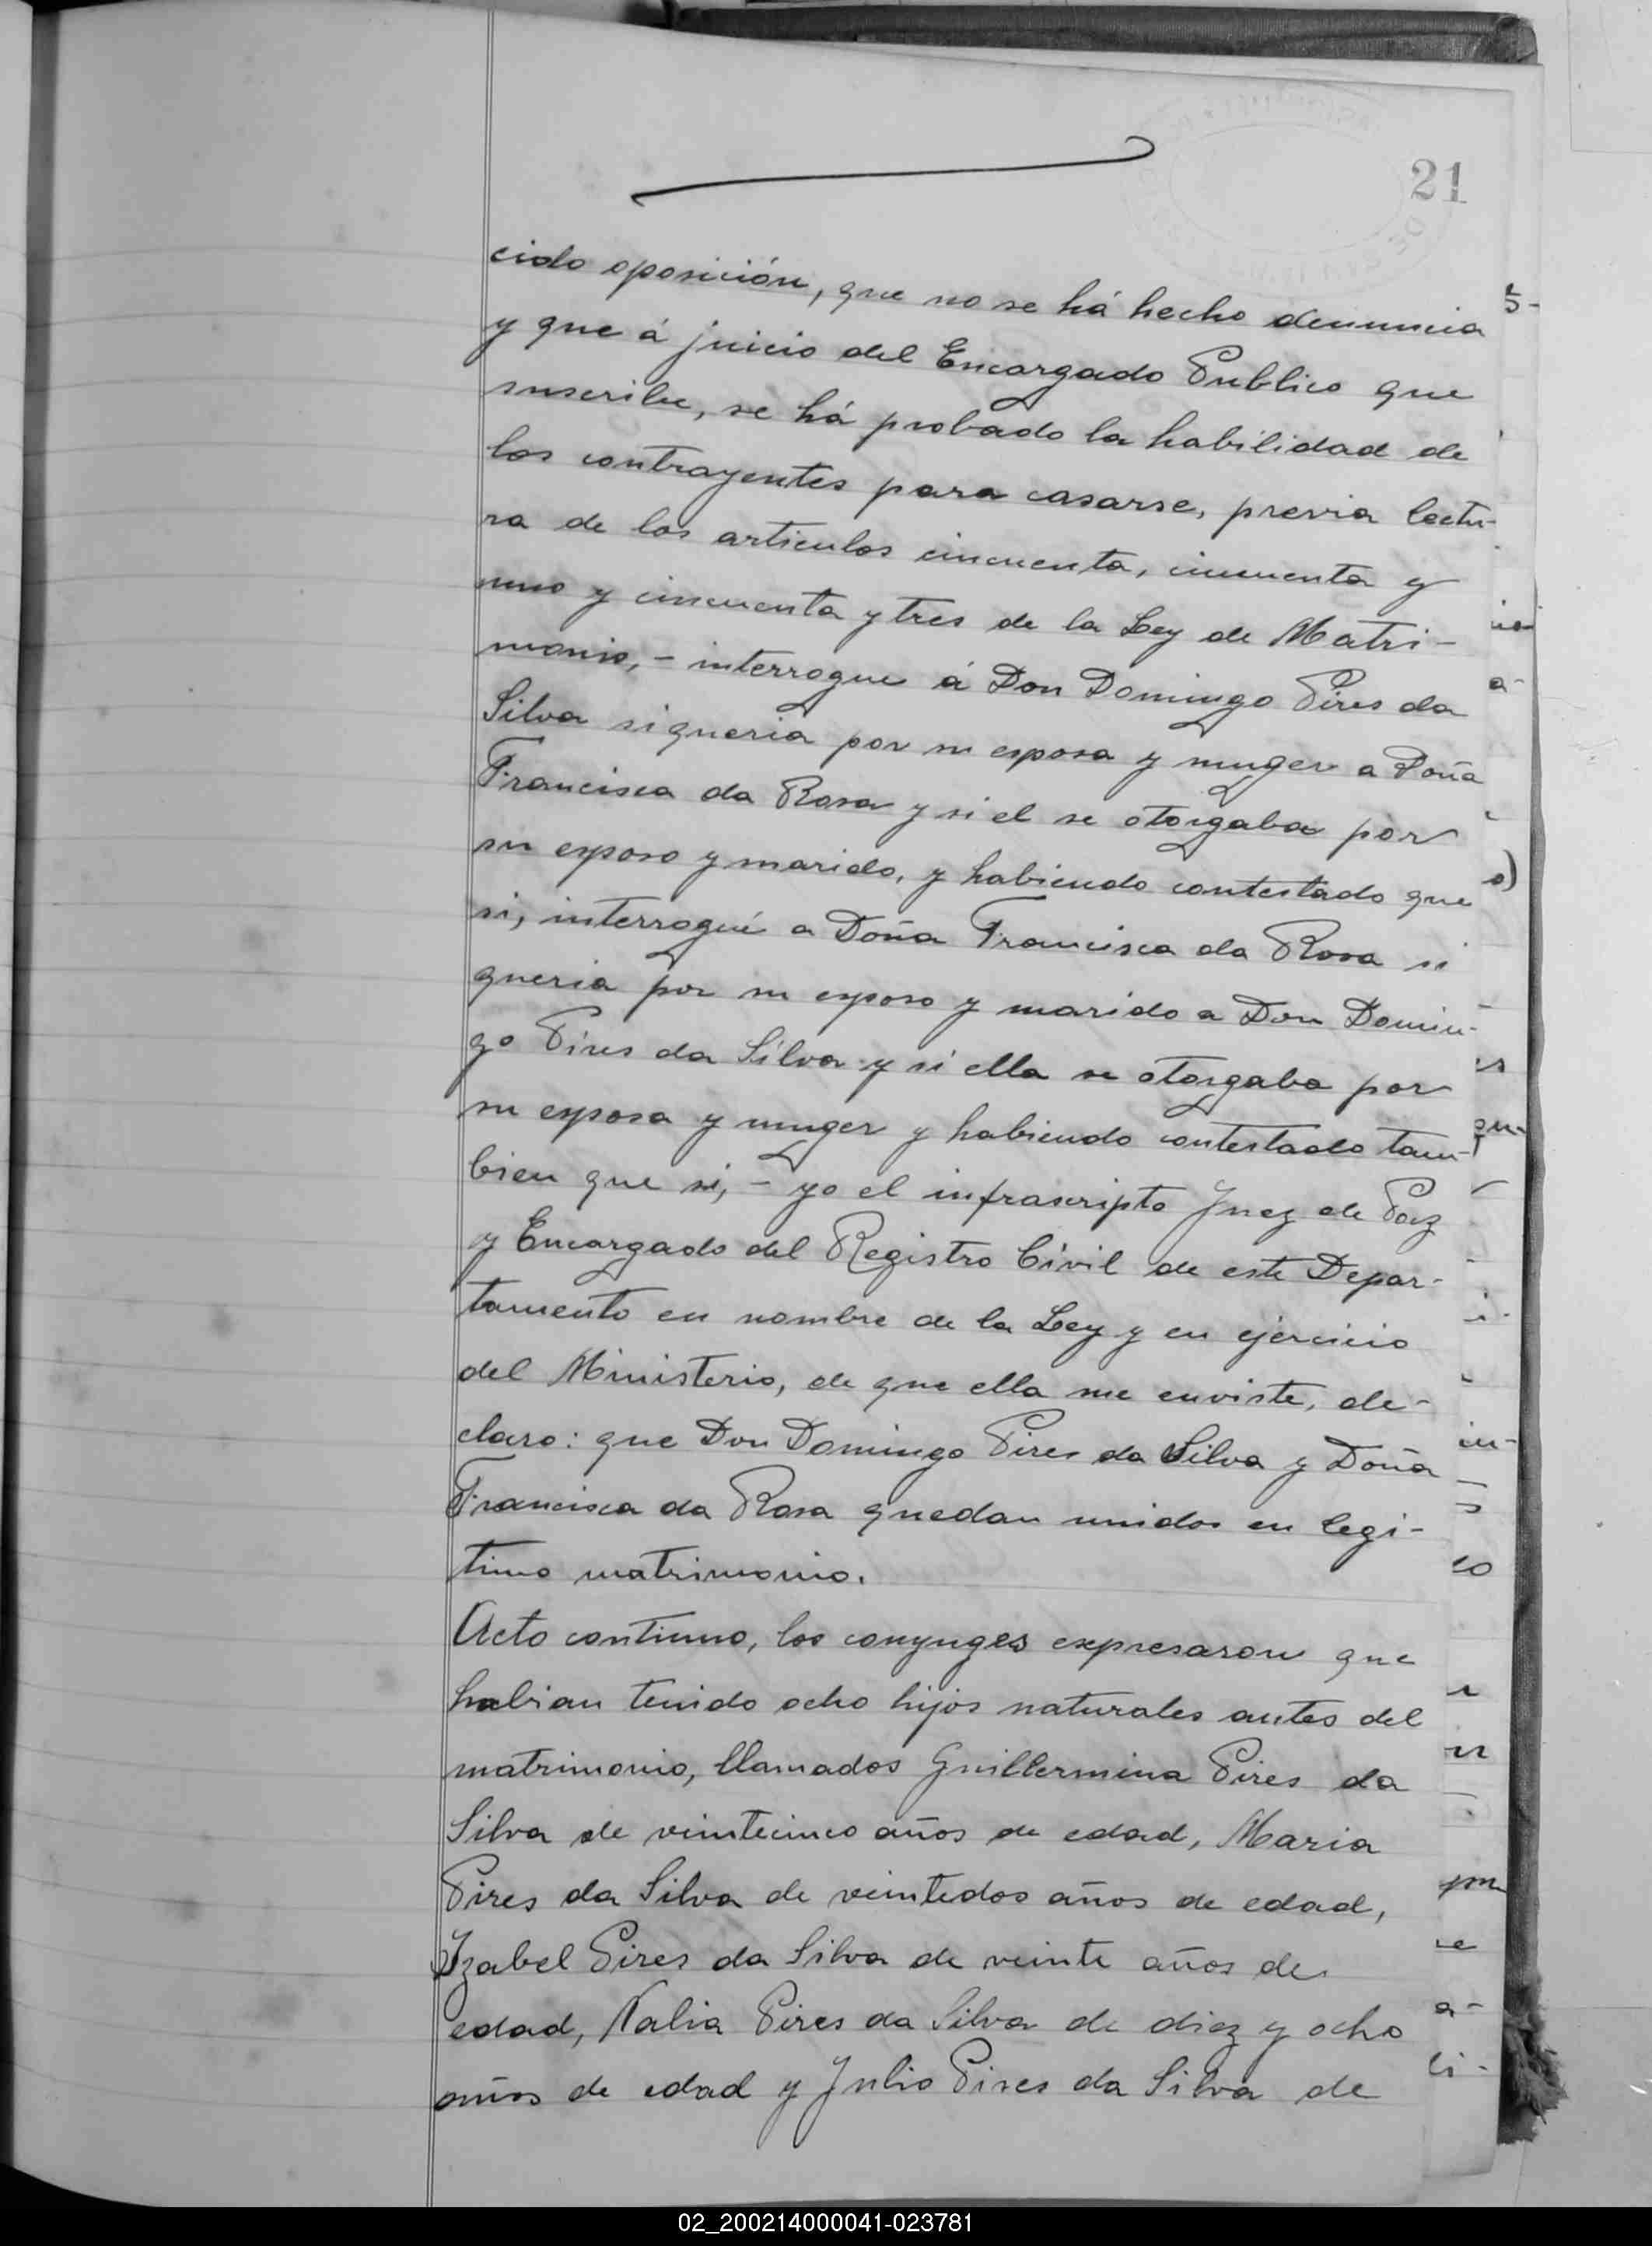 21
cido oposición, que no se há hecho denuncia
y que á juicio del Encargado Publico que
suscribe, se há probado la habilidad de
los contrayentes para casarse, previa lectu-
ra de los articulos cincuenta, cincuenta y
uno y cincuenta y tres de la Ley de Matri-
monio, - interrogue á Don Domingo Pires da
Silva si queria por su esposa y muger a Doña
Francisca da Rosa y si el se otorgaba por
su esposo y marido, y habiendo contestado que
si, interrogué a Doña Francisca da Rosa si
queria por su esposo y marido a Don Domin-
go Pires da Silva y si ella se otorgaba por
su esposa y muger y habiendo contestado tam-
bien que si, - yo el infrascripto Juez de Paz
y Encargado del Registro Civil de este Depar-
tamento en nombre de la Ley y en ejercicio
del Ministerio, de que ella me enviste, de-
claro: que Don Domingo Pires da Silva y Doña
Francisca da Rosa quedan unidos en legi-
timo matrimonio.
Acto continuo, los conyuges expresaron que
habian tenido ocho hijos naturales antes del
matrimonio, llamados Guillermina Pires da
Silva de veintecinco años de edad, Maria
Pires da Silva de veintedos años de edad,
Izabel Pires da Silva de veinte años de
edad, Nalia Pires da Silva de diez y ocho
años de edad y Julio Pires da Silva de
02_200214000041-023781